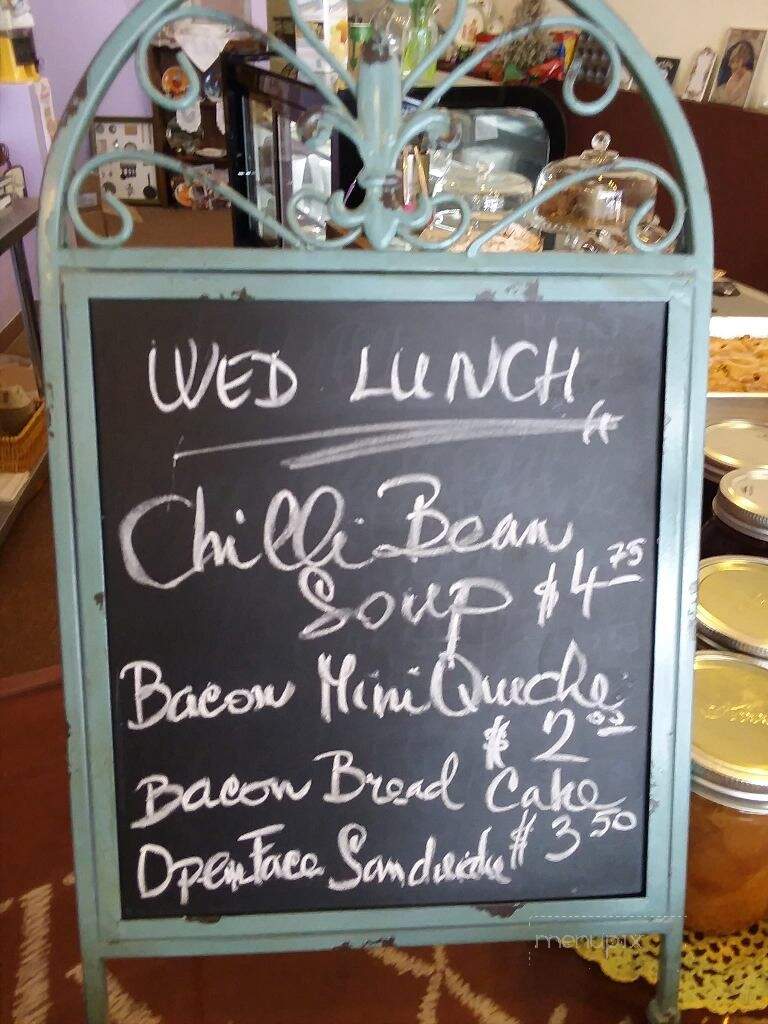 WED LUNCH
Chilli Bean
Soup $4.75
Bacon Mini Quiche
$2.00
Bacon Bread Cake
$3.50
Open Face Sandwich
menupix